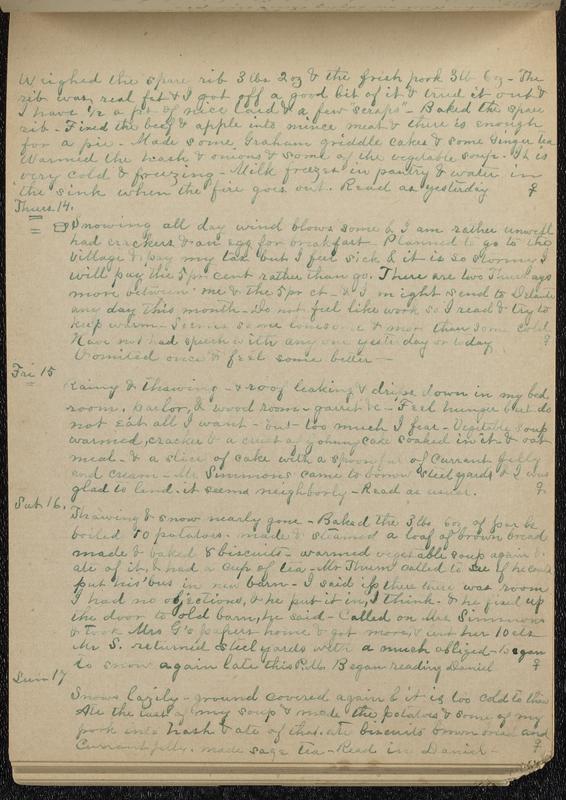 Weighed the spare rib 3 lbs 2 oz & the fresh pork 3 lb 6 oz - The
rib was real fat & I got off a good bit of it & tried it out &
I have 1/2 a pt of nice lard & a few "scraps" - Baked the spare
rib - Fixed the beef & apple into mince meat & there is enough
for a pie - Made some Graham griddle cakes & some Ginger tea
Warmed the hash & onions & some of the vegetable soup - It is
very cold & freezing - Milk freezes in pantry & water in
the sink when the fire goes out. Read as yesterday ♀
Thurs 14.
Snowing all day wind blows some & I am rather unwell
had crackers & an egg for breakfast - Planned to go to the
village & pay my tax but I feel sick & it is so stormy I
will pay the 5 pr cent rather than go. There are two Thursdays
more between me & the 5 pr ct - & I might send to
any day this month - Do not feel like work so I read & try to
keep warm - Seems some lonesome & more than some cold
Have not had speech with any one yesterday or today ♀
Vomited once & feel some better -
Fri 15
Rainy & thawing - & roof leaking & drips down in my bed
room, parlor, & wood room - garret &c - Feel hunger but do
not eat all I want - but - too much I fear - Vegetable soup
warmed, cracker & a crust of johnny cake soaked in it & oat
meal - & a slice of cake with a spoonful of Currant jelly
and cream - Mr Simmons came to borrow steelyards & I was
glad to lend - it seems neighborly - Read as usual. ♀
Sat 16.
Thawing & snow nearly gone - Baked the 3 lbs 6 oz of pork
boiled 10 potatoes. made & steamed a loaf of brown bread
made & baked 8 biscuits - warmed vegetable soup again &
ate of it, & had a cup of tea - Mr called to see if he could
put his bus in new barn - I said if there was room
I had no objections, & he put it in, I think - & he fixed up
the door to old barn, he said - Called on Mrs Simmons
& took Mrs G's papers home & got more, & her 10 cts
Mr S. returned steelyards with a much obliged - Began
to snow again late this P.M. Began reading Daniel ♀
Sun 17
Snows lazily - ground covered again & it is too cold to thaw
Ate the last of my soup & made the potatoes & some of my
pork into hash & ate of that. ate biscuits and
Currant jelly. made sage tea - Read in Daniel - ♀